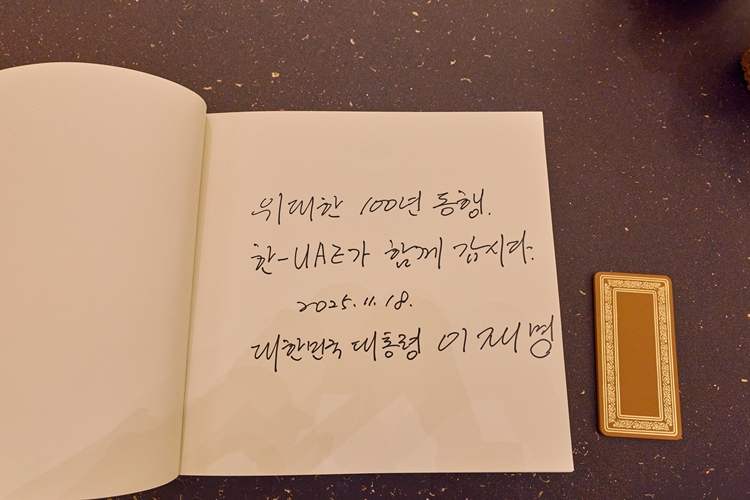 위대한 100년 동행.
한-UAE가 함께 갑시다.
2025. 11. 18.
대한민국 대통령 이재명